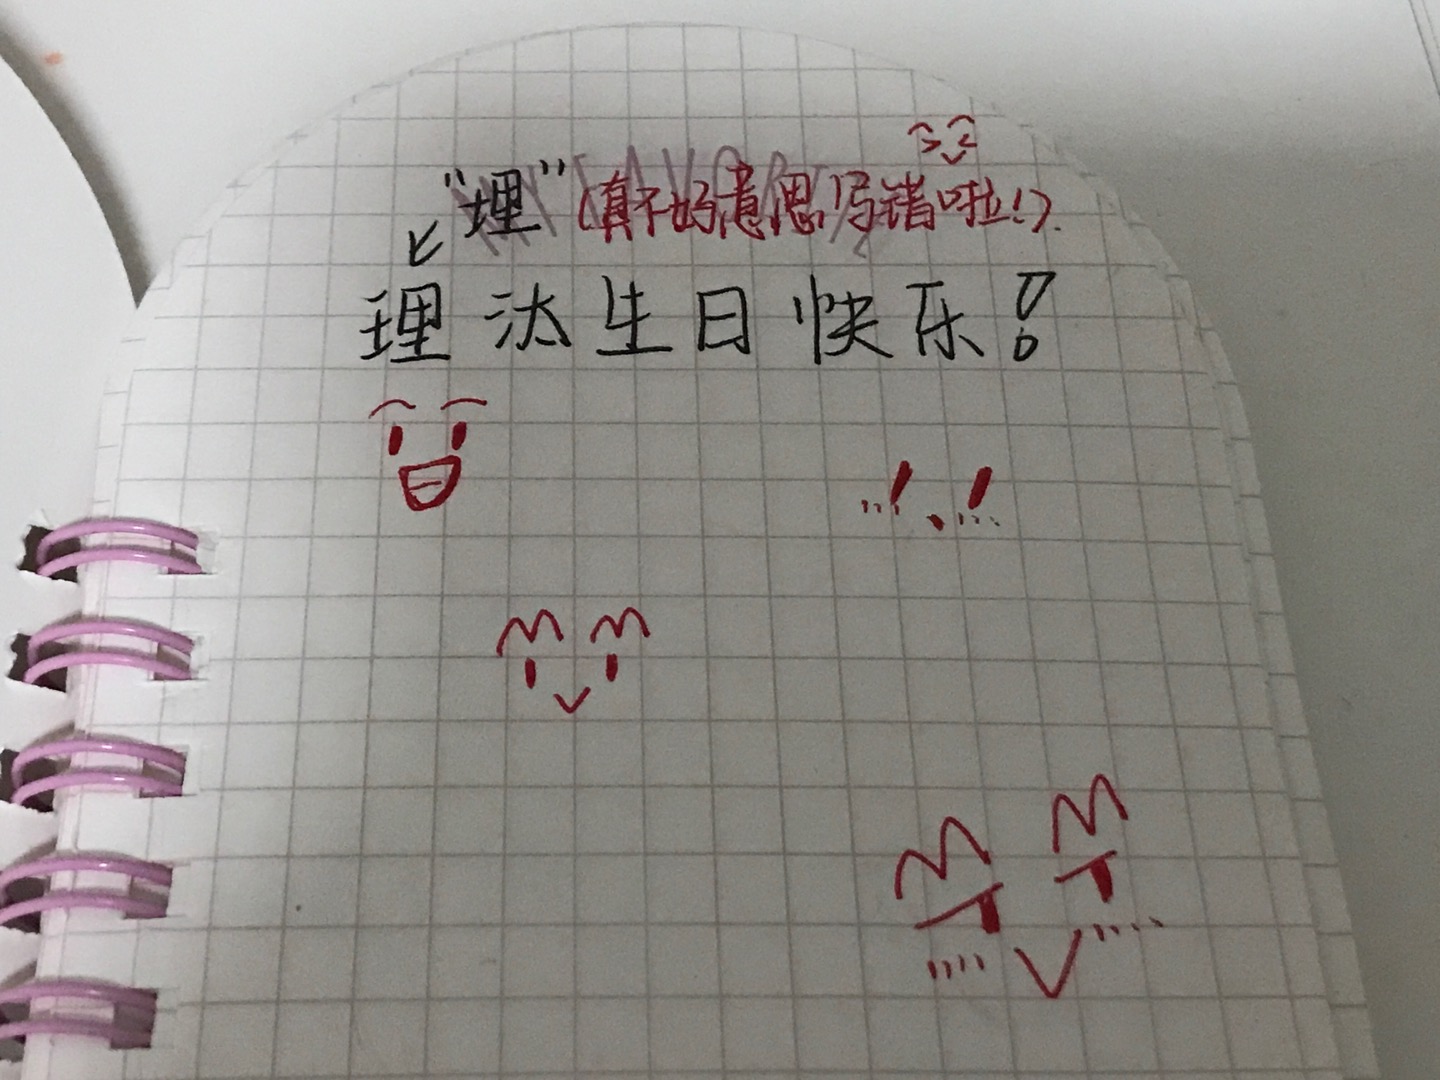 “埋”(真不好意思,写错啦!).
理汰生日快乐!